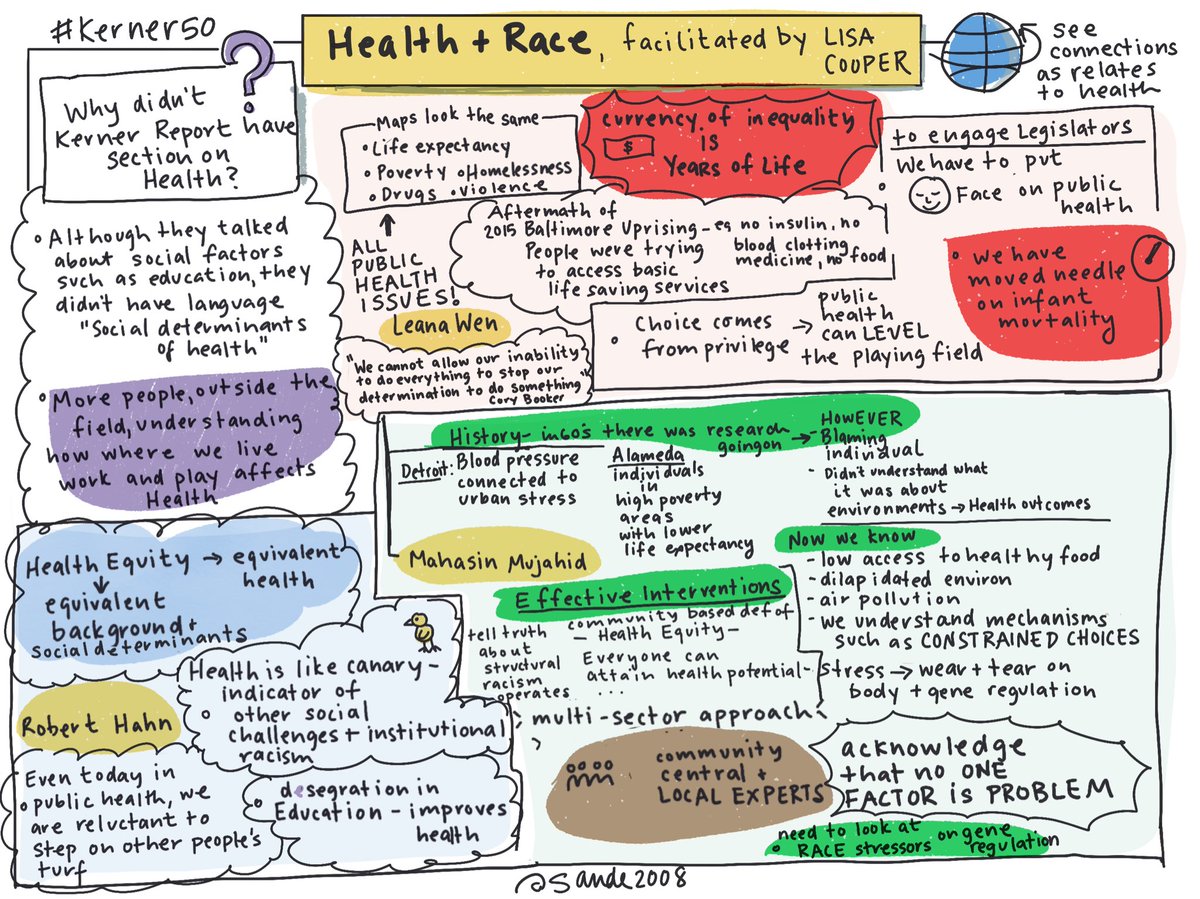 #Kerner50
Health + Race, facilitated by LISA
COOPER
see
connections
as relates
to health
?
Why didn't
Kerner Report have
section on
Health?
• Although they talked
about social factors
such as education, they
didn't have language
"Social determinants
of health"
• More people, outside the
field, understanding
how where we live
work and play affects
Health
Maps look the same
• Life expectancy
• Poverty • Homelessness
• Drugs • Violence
ALL
PUBLIC
HEALTH
ISSUES!
Leana Wen
"We cannot allow our inability
to do everything to stop our
determination to do something"
Cory Booker
currency of inequality
$ IS
Years of Life
Aftermath of
2015 Baltimore Uprising - eg no insulin, no
blood clotting
medicine, no food
People were trying
to access basic
life saving services
• Choice comes
from privilege → public
health
can LEVEL
the playing field
to engage Legislators
• We have to put
Face on public
health
• we have
moved needle
on infant
mortality
History - in 60's there was research
going on → HowEVER
Blaming
individual
- Didn't understand what
it was about
environments → Health outcomes
Detroit: Blood pressure
connected to
urban stress
Alameda
individuals
in
high poverty
areas
with lower
life expectancy
Mahasin Mujahid
Now we know
- low access to healthy food
- dilapidated environ
- air pollution
- we understand mechanisms
such as CONSTRAINED CHOICES
- stress → wear + tear on
body + gene regulation
Effective Interventions
• tell truth
about
structural
racism
operates
community based def of
- Health Equity -
Everyone can
attain health potential
...
multi-sector approach
community
central +
LOCAL EXPERTS
acknowledge
that no ONE
FACTOR is PROBLEM
• need to look at
RACE stressors on gene
regulation
Health Equity → equivalent
health
equivalent
background +
social determinants
Robert Hahn
Health is like canary -
indicator of
• other social
challenges + institutional
racism
Even today in
• public health, we
are reluctant to
step on other people's
turf
• desegration in
Education - improves
health
@Sande2008